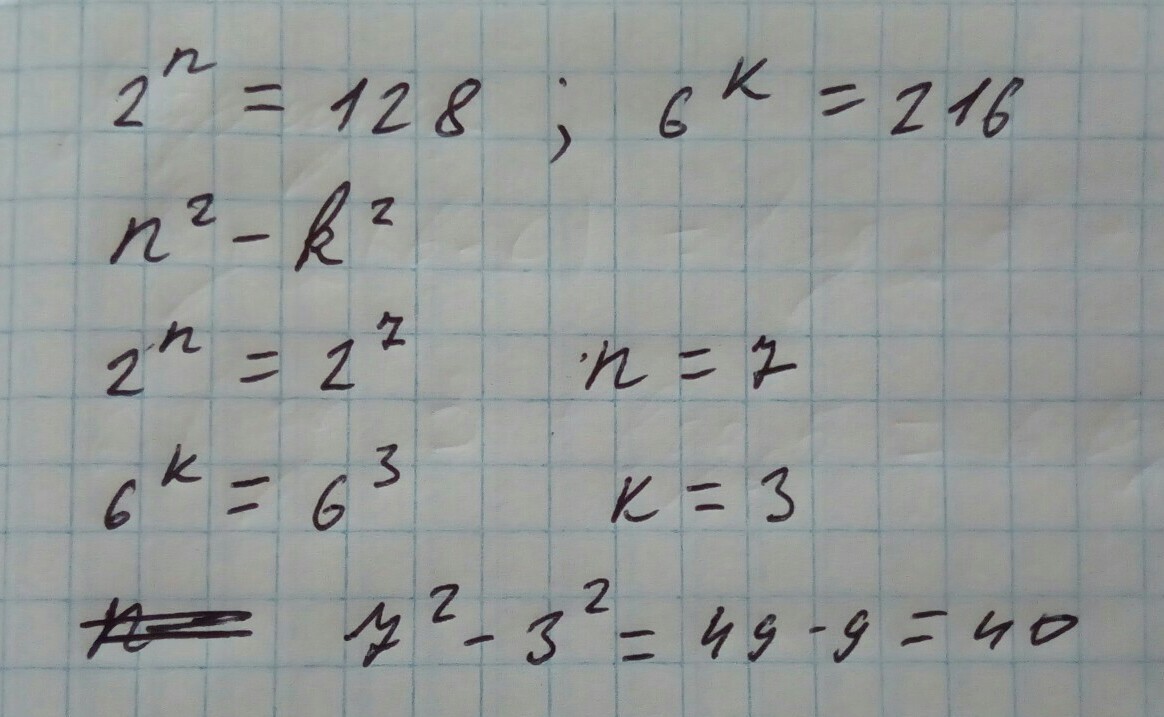 2ⁿ = 128 ; 6ᵏ = 216
n² - k²
2ⁿ = 2⁷ n = 7
6ᵏ = 6³ k = 3
7² - 3² = 49 - 9 = 40